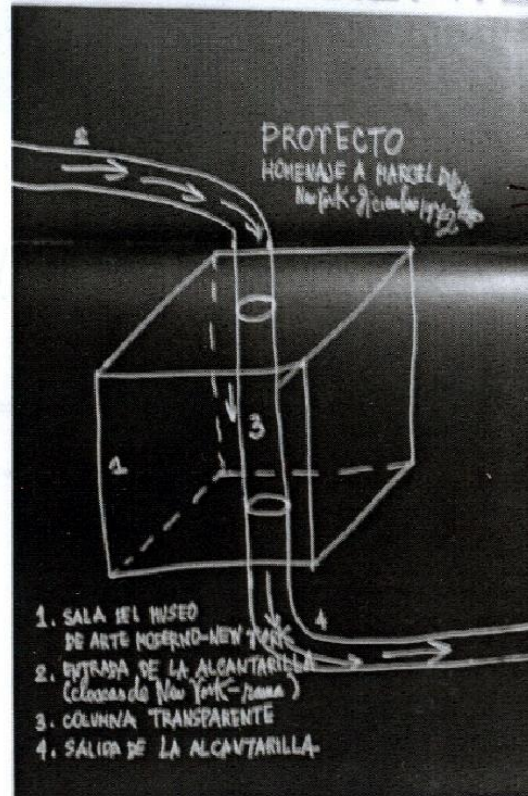 2
PROYECTO
HOMENAJE A MARCEL
New York - Diciembre 1972
3
1
4
1. SALA DEL MUSEO
DE ARTE MODERNO-NEW YORK
2. ENTRADA DE LA ALCANTARILLA
(cloacas de New York-
3. COLUMNA TRANSPARENTE
4. SALIDA DE LA ALCANTARILLA.